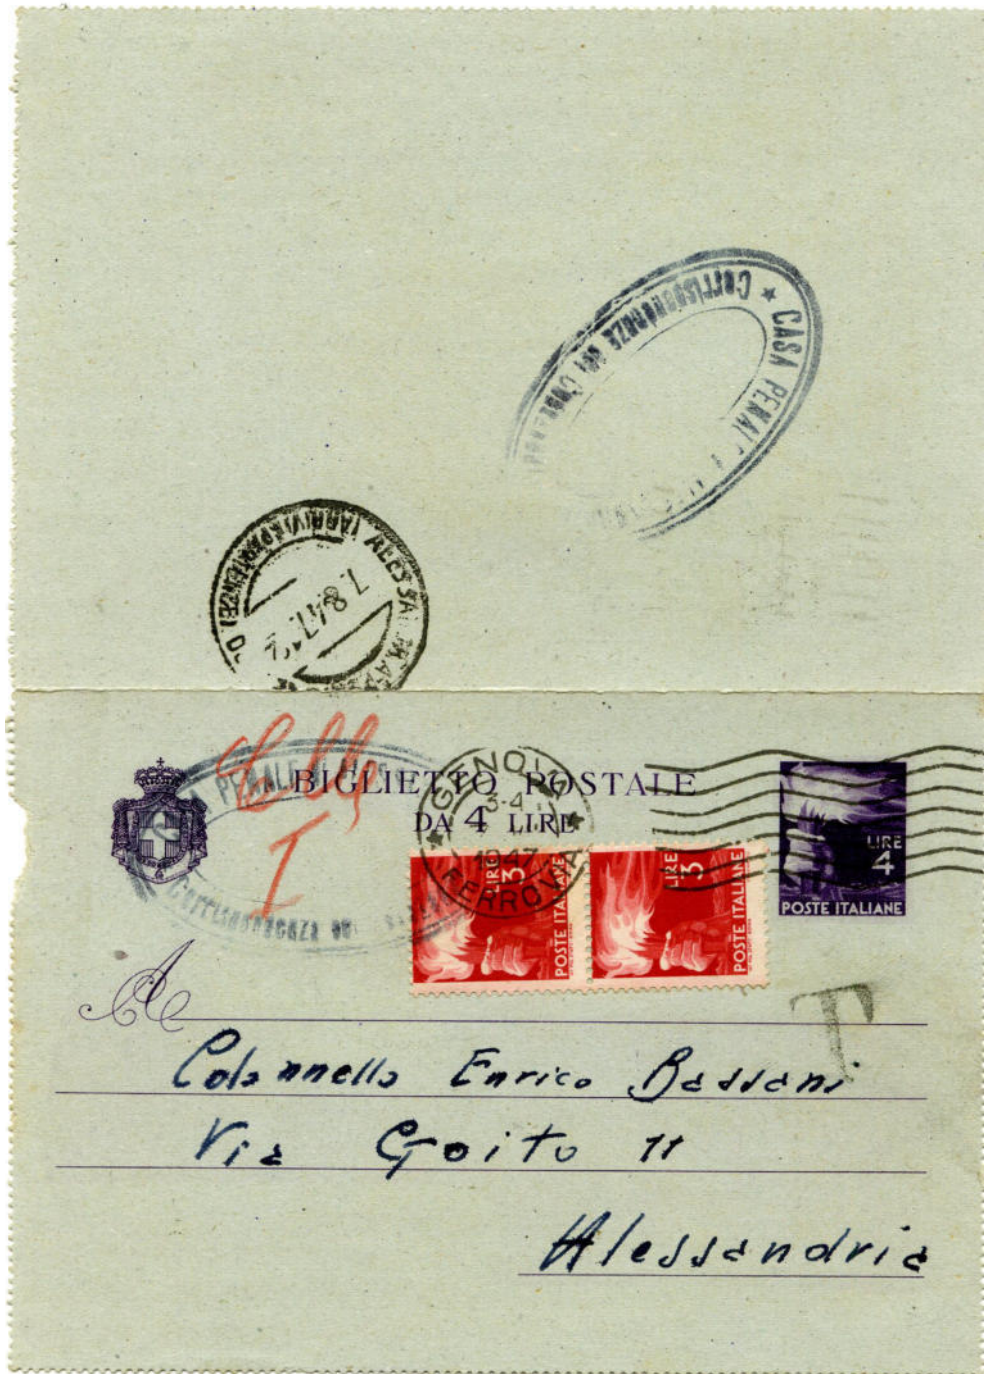 ★ CASA PENALE
Corrispondenze dei
ALESSANDRIA (ARRIVI E PARTENZE)
7.8.47
Celle
I
PENALE
Corrispondenza dei
BIGLIETTO POSTALE
DA 4 LIRE
GENOVA
3-4
1947
FERROVIA
LIRE
4
POSTE ITALIANE
LIRE
3
POSTE ITALIANE
LIRE
3
POSTE ITALIANE
T
A
Colonnello Enrico Bassani
Via Goito 11
Alessandria